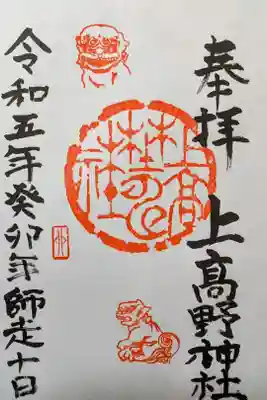 奉拝
上高野神社
令和五年癸卯年師走十日